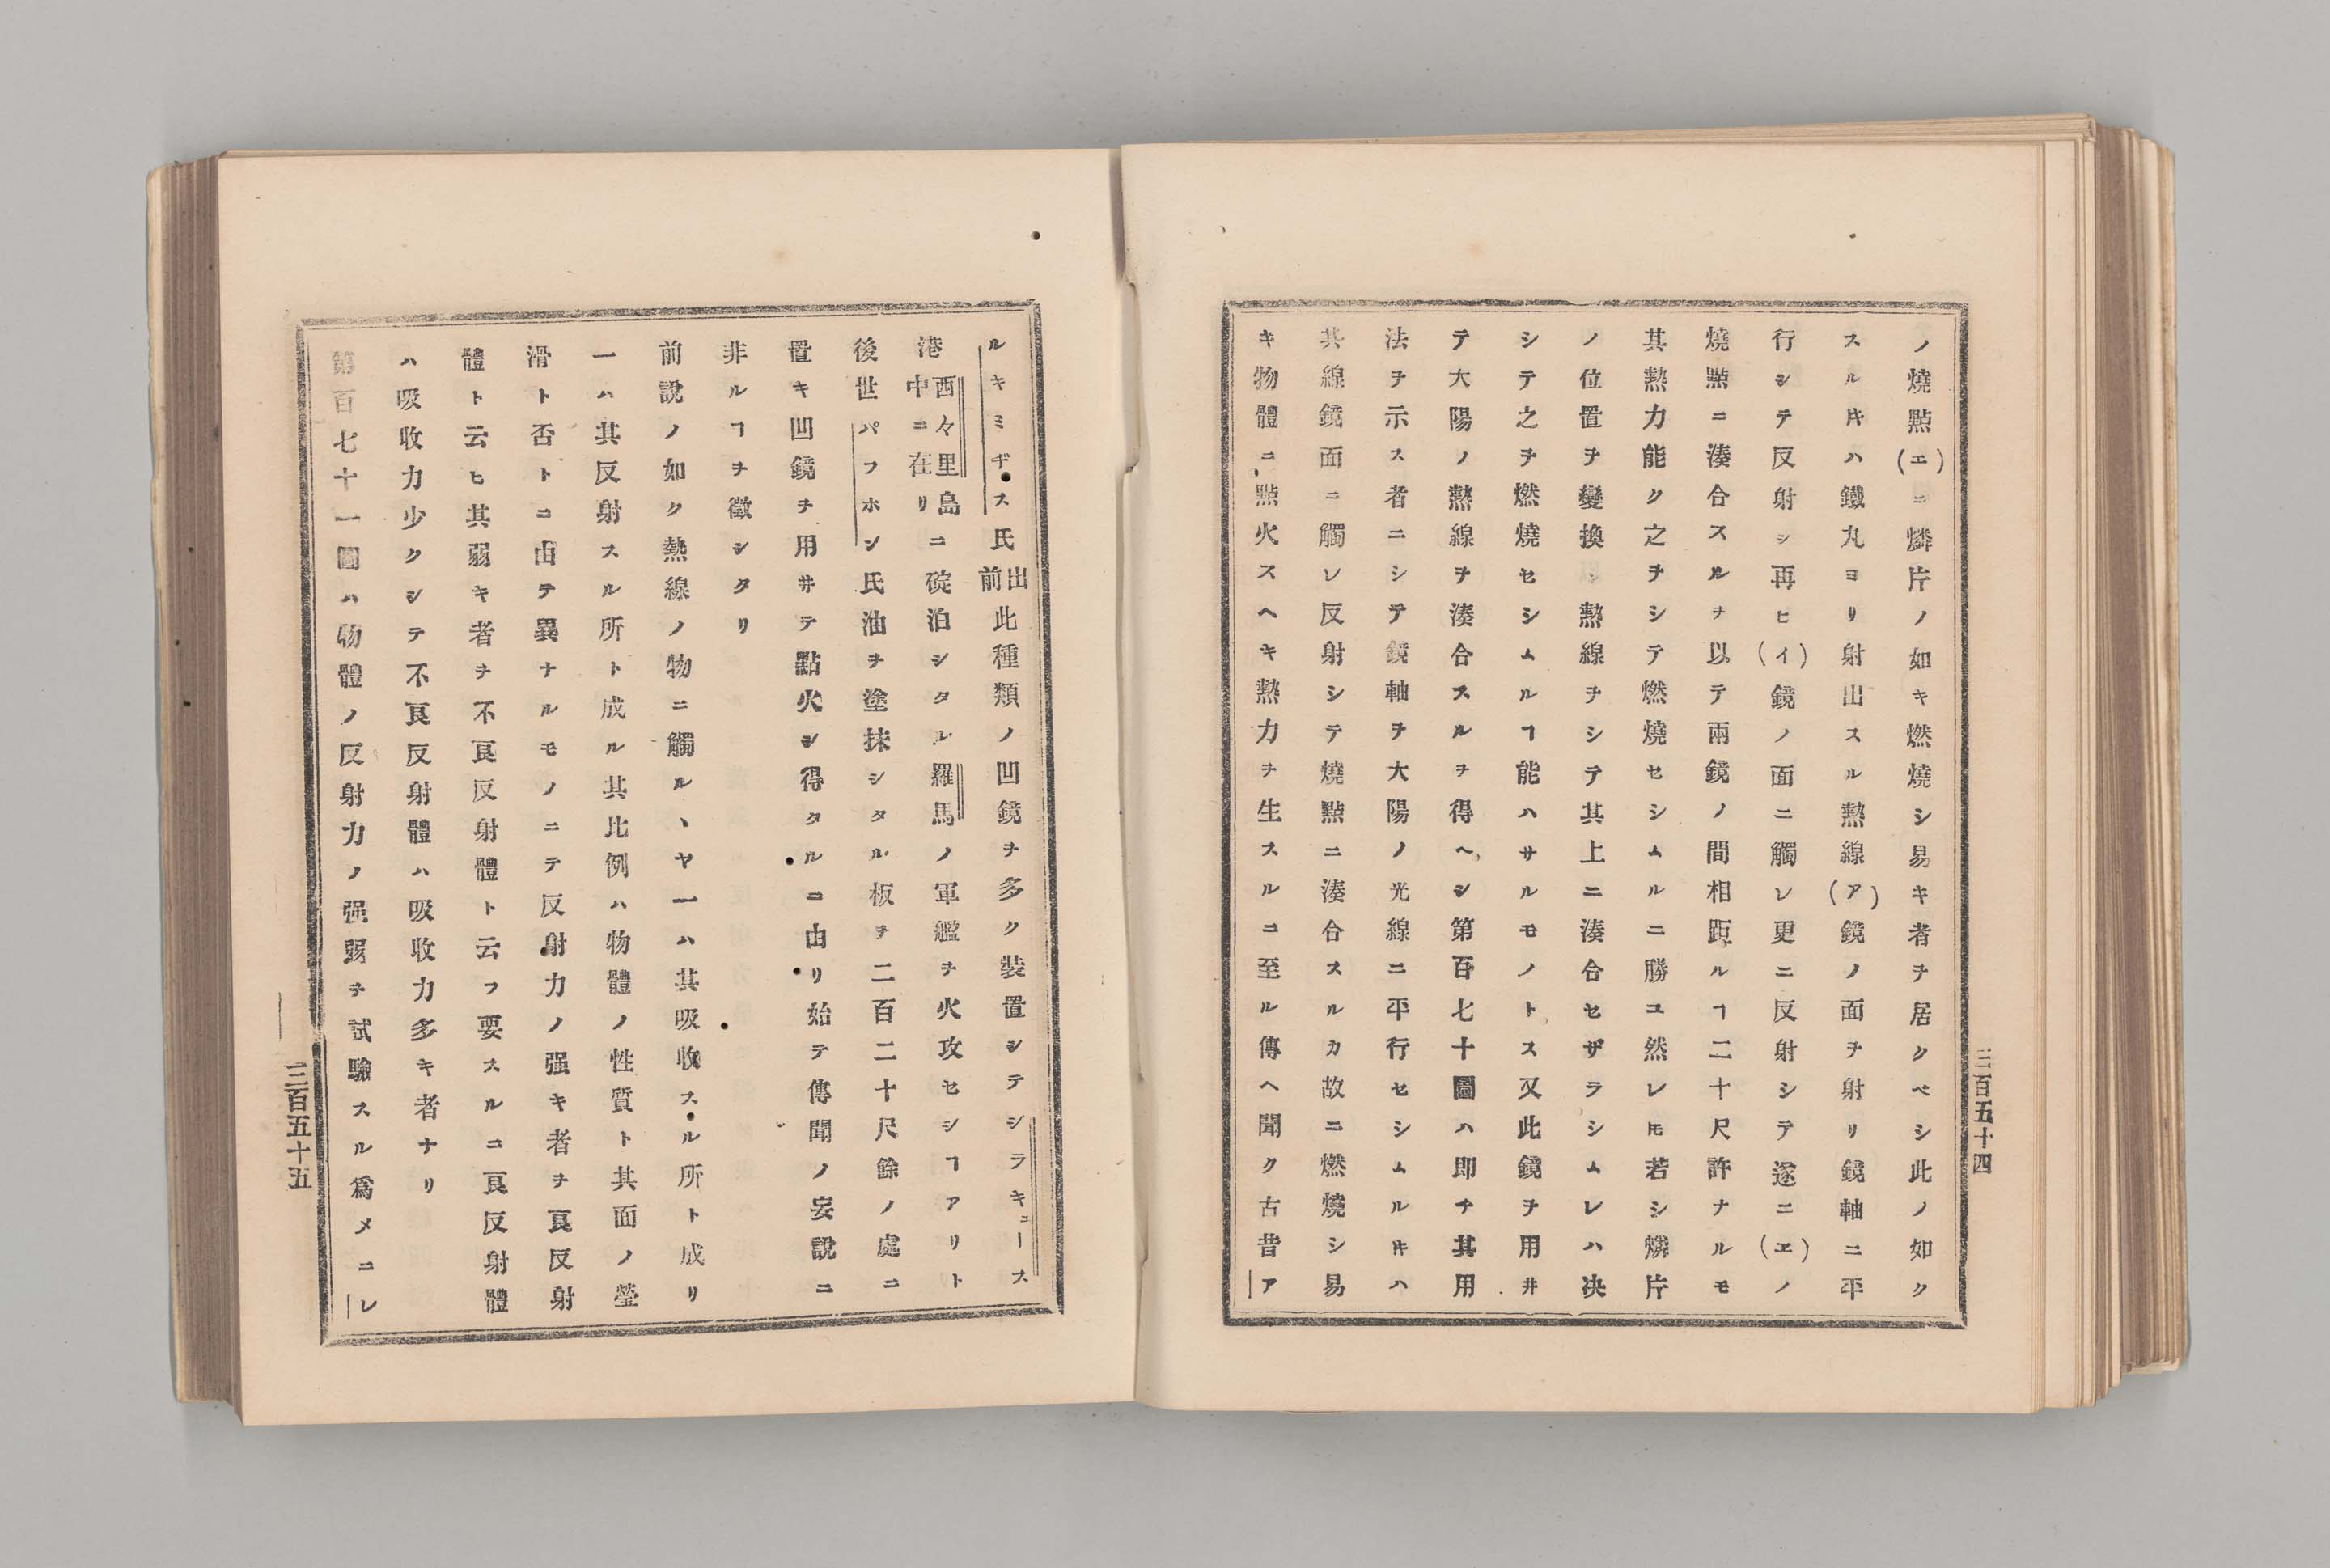 ノ燒㸃(エ)ニ燐片ノ如キ燃燒シ易キ者ヲ居クベシ此ノ如ク
スル𪜈ハ鐵丸ヨリ射出スル熱線(ア)鏡ノ面ヲ射リ鏡軸ニ平
行シテ反射シ再ヒ(イ)鏡ノ面ニ觸レ更ニ反射シテ遂ニ(エ)ノ
燒㸃ニ湊合スルヲ以テ兩鏡ノ間相距ルヿ二十尺許ナルモ
其熱力能ク之ヲシテ燃燒セシムルニ勝ユ然レ𪜈若シ燐片
ノ位置ヲ變換シ熱線ヲシテ其上ニ湊合セザラシムレハ决
シテ之ヲ燃燒セシムルヿ能ハサルモノトス又此鏡ヲ用井
テ大陽ノ熱線ヲ湊合スルヲ得ヘシ第百七十圖ハ即チ其用
法ヲ示ス者ニシテ鏡軸ヲ大陽ノ光線ニ平行セシムルキハ
其線鏡面ニ觸レ反射シテ燒㸃ニ湊合スルカ故ニ燃燒シ易
キ物體ニ㸃火スヘキ熱力ヲ生スルニ至ル傳ヘ聞ク古昔ア
三百五十四
ルキミヂス氏出前此種類ノ凹鏡ヲ多ク裝置シテシラキュース
港西々里島中ニ在リニ碇泊シタル羅馬ノ軍艦ヲ火攻セシヿアリト
後世パフホン氏油ヲ塗抹シタル板ヲ二百二十尺餘ノ處ニ
置キ凹鏡ヲ用井テ點火シ得タルニ由リ始テ傳聞ノ妄說ニ
非ルヿヲ徵シタリ
前說ノ如ク熱線ノ物ニ觸ルヽヤ一ハ其吸收スル所ト成リ
一ハ其反射スル所ト成ル其比例ハ物體ノ性質ト其面ノ瑩
滑ト否トニ由テ異ナルモノニテ反射力ノ强キ者ヲ良反射
體ト云ヒ其弱キ者ヲ不良反射體ト云フ要スルニ良反射體
ハ吸收力少クシテ不良反射體ハ吸收力多キ者ナリ
第百七十一圖ハ物體ノ反射力ノ强弱ヲ試驗スル爲メニレ
三百五十五